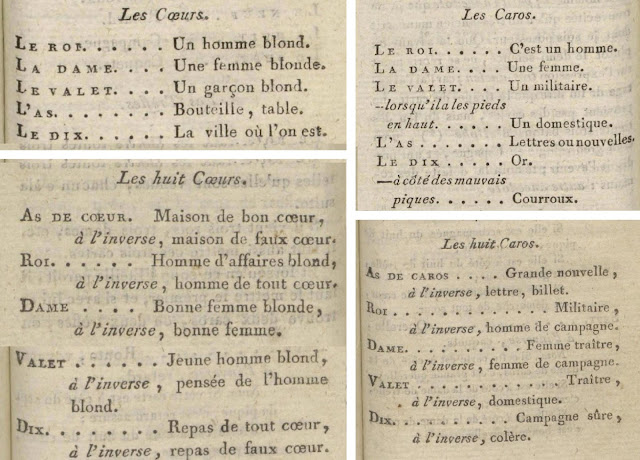 Les Cœurs.
LE ROI. . . . . . Un homme blond.
LA DAME. . . . . Une femme blonde.
LE VALET. . . . . Un garçon blond.
L'AS. . . . . . . . Bouteille, table.
LE DIX. . . . . . . La ville où l'on est.
Les huit Cœurs.
AS DE CŒUR. Maison de bon cœur,
à l'inverse, maison de faux cœur.
ROI. . . . . . Homme d'affaires blond,
à l'inverse, homme de tout cœur.
DAME . . . . Bonne femme blonde,
à l'inverse, bonne femme.
VALET . . . . Jeune homme blond,
à l'inverse, pensée de l'homme
blond.
DIX. . . . . . . . Repas de tout cœur,
à l'inverse, repas de faux cœur.
Les Caros.
LE ROI. . . . . . C'est un homme.
LA DAME. . . . . Une femme.
LE VALET. . . . . Un militaire.
—lorsqu'il a les pieds
en haut. . . . . . Un domestique.
L'AS . . . . . . . Lettres ou nouvelles.
LE DIX . . . . . . Or.
—à côté des mauvais
piques. . . . . . Courroux.
Les huit Caros.
AS DE CAROS . . . . Grande nouvelle,
à l'inverse, lettre, billet.
ROI . . . . . . . . . . . . Militaire,
à l'inverse, homme de campagne.
DAME. . . . . . . . . . Femme traître,
à l'inverse, femme de campagne.
VALET . . . . . . . . . . . . Traître,
à l'inverse, domestique.
DIX. . . . . . . . . Campagne sûre,
à l'inverse, colère.